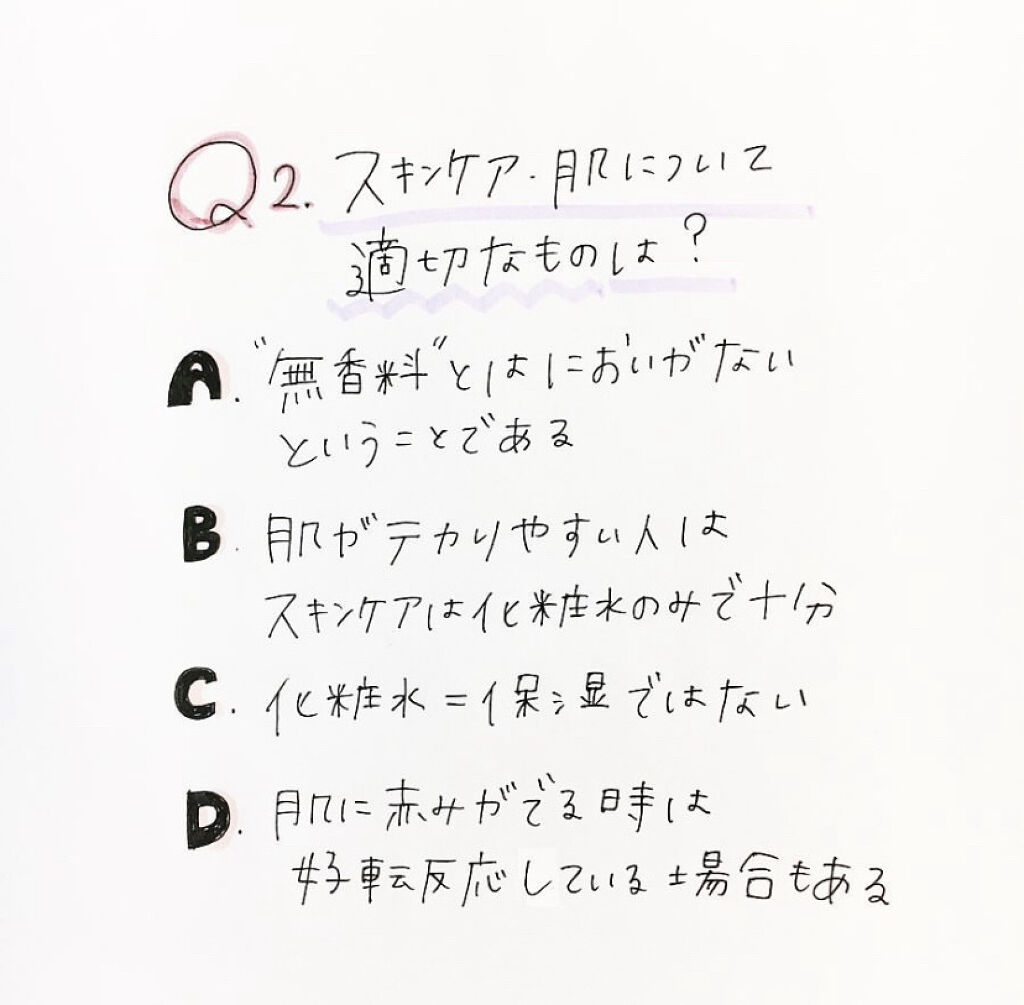 Q2. スキンケア・肌について
適切なものは?
A. "無香料"とはにおいがない
ということである
B. 肌がテカりやすい人は
スキンケアは化粧水のみで十分
C. 化粧水=保湿ではない
D. 肌に赤みがでる時は
好転反応している場合もある